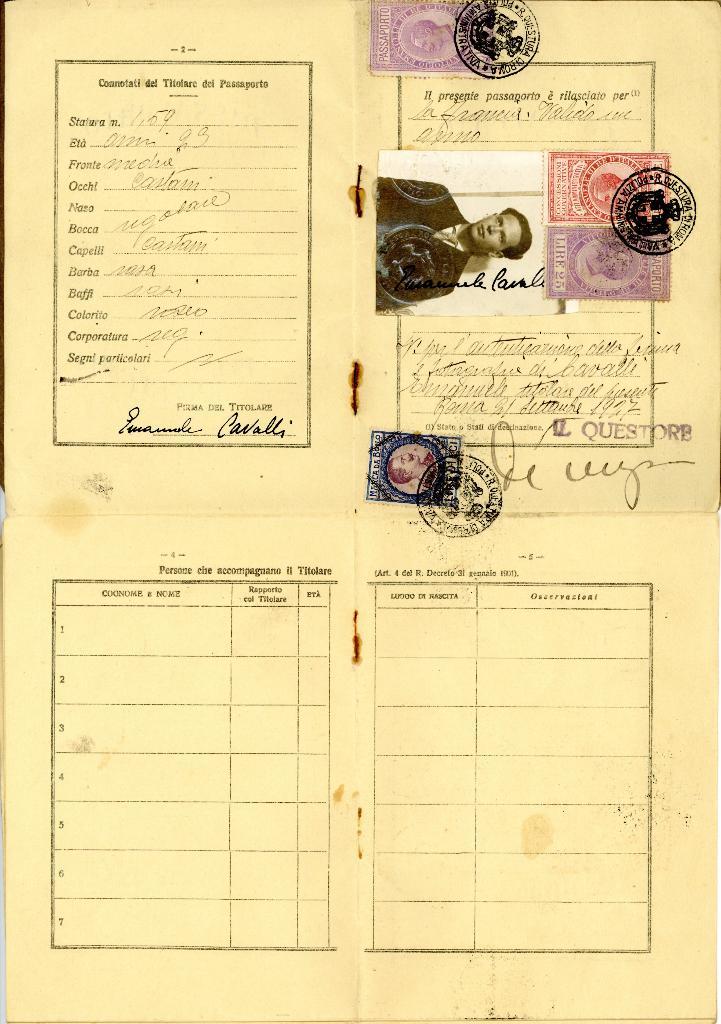 — 2 —
Connotati del Titolare del Passaporto
Statura m. 1,59
Età anni 23
Fronte media
Occhi castani
Naso regolare
Bocca
Capelli castani
Barba rasa
Baffi rasi
Colorito roseo
Corporatura reg.
Segni particolari
FIRMA DEL TITOLARE
Emanuele Cavalli
PASSAPORTO
R. QUESTURA DI ROMA
Il presente passaporto è rilasciato per (1)
la Francia. Valido un
anno
CONCESSIONI GOVERNATIVE
R. QUESTURA DI ROMA
LIRE 25
Emanuele Cavalli
Vº per l'autenticazione della firma
e fotografia di Cavalli
Emanuele titolare del presente
Roma 21 settembre 1927
(1) Stato o Stati di destinazione.
IL QUESTORE
MARCA DA BOLLO
— 4 —
Persone che accompagnano il Titolare
COGNOME E NOME
Rapporto col Titolare
ETÀ
1
2
3
4
5
6
7
— 5 —
(Art. 4 del R. Decreto 31 gennaio 1901).
LUOGO DI NASCITA
Osservazioni